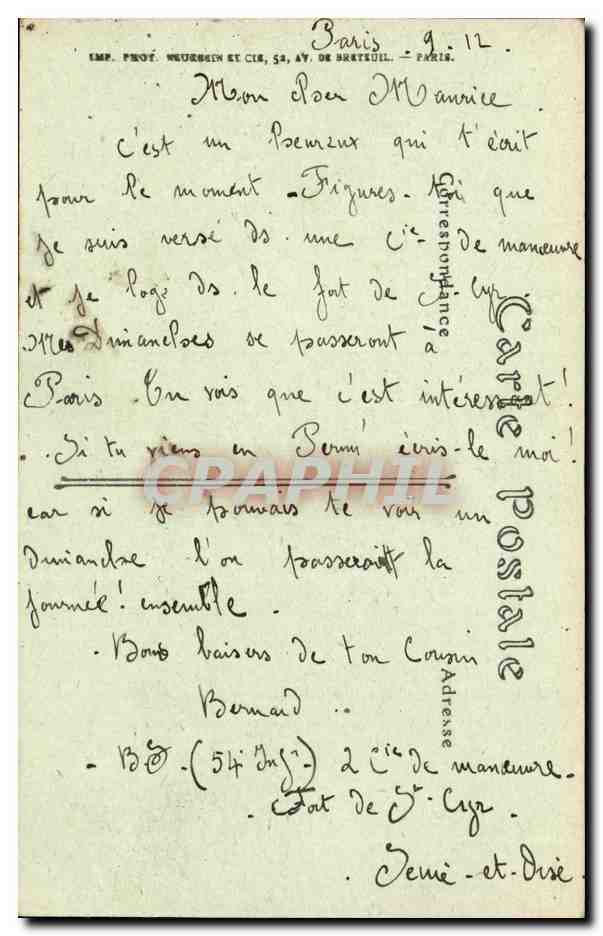 Paris 9.12.
IMP. PHOT. NEURDEIN ET CIE, 52, AV. DE BRETEUIL. — PARIS.
Mon cher Maurice
c'est un heureux qui t'écrit
pour le moment - Figures-toi que
je suis versé ds. une Cie de manœuvre
et je loge ds. le fort de St-Cyr.
Mes Dimanches se passeront à
Paris. Tu vois que c'est intéressant!
. Si tu viens en Perm' écris-le moi!
car si je pouvais te voir un
Dimanche l'on passerait la
journée! ensemble.
. Bons baisers de ton Cousin
Bernard ..
- BS - (54 Ing-) 2 Cie de manœuvre.
. Fort de St-Cyr.
. Seine-et-Oise.
Correspondance
Adresse
Carte Postale
CPAPHIL